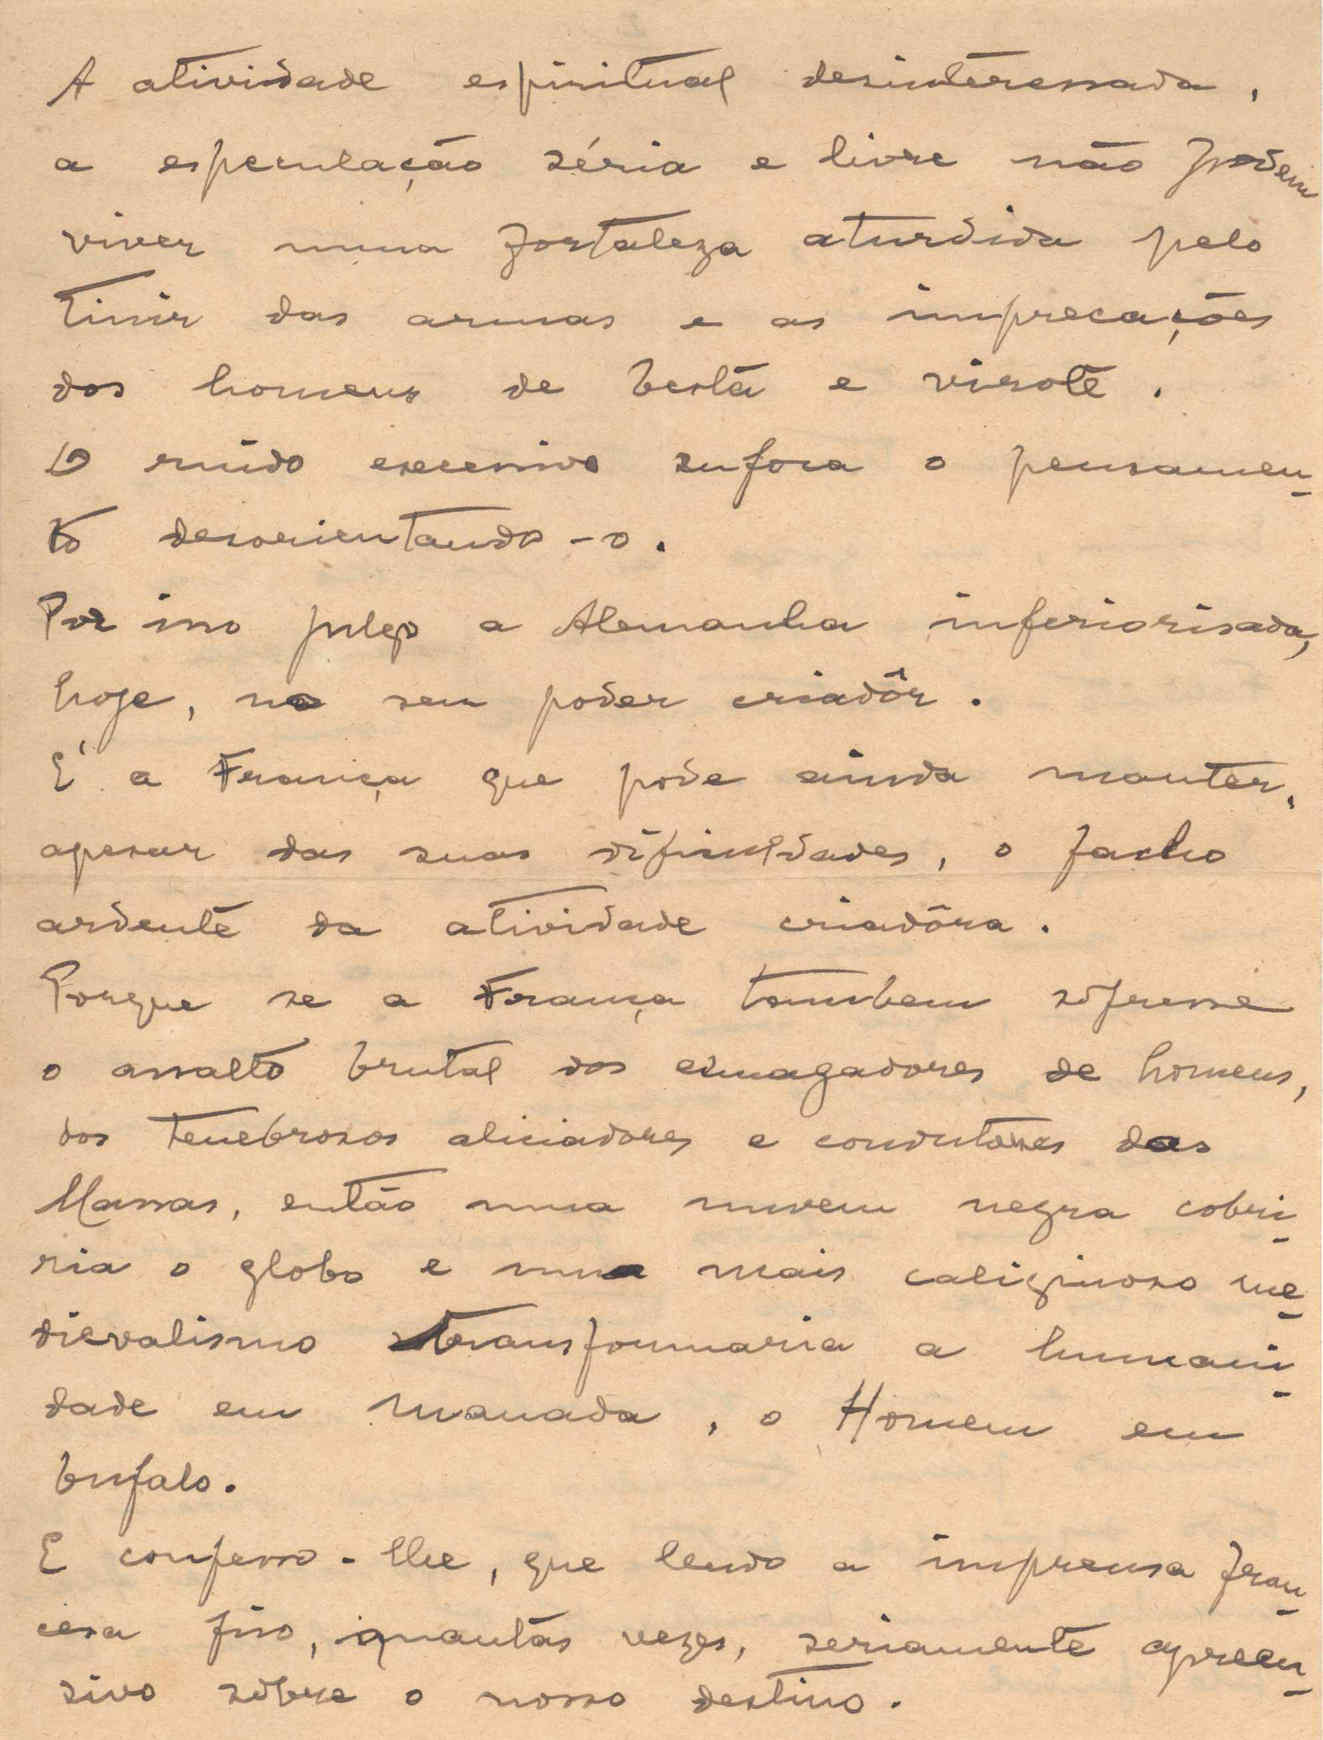 A atividade espiritual desinteressada,
a especulação séria e livre não podem
viver numa fortaleza aturdida pelo
tinir das armas e as imprecações
dos homens de besta e virote.
O ruido excessivo sufoca o pensamen-
to desorientando-o.
Por isso julgo a Alemanha inferiorisada,
hoje, no seu poder criadôr.
E' a França que pode ainda manter,
apesar das suas dificuldades, o facho
ardente da atividade criadôra.
Porque se a França tambem sofresse
o assalto brutal dos esmagadores de homens,
dos tenebrosos aliciadores e condutores das
Massas, então uma nuvem negra cobri-
ria o globo e um mais caliginoso me-
dievalismo transformaria a humani-
dade em manada, o Homem em
bufalo.
E confesso-lhe, que lendo a imprensa fran-
cesa fico, quantas vezes, seriamente apreen-
sivo sôbre o nosso destino.